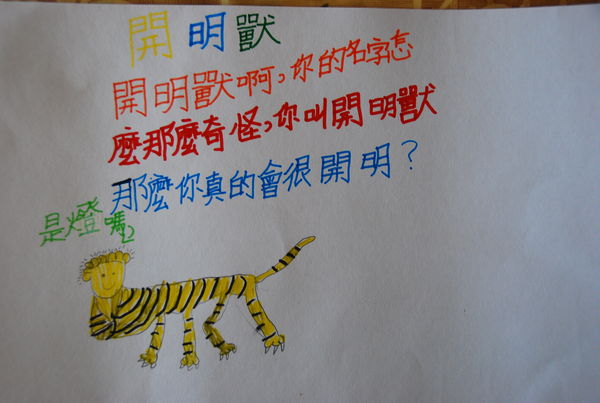 開明獸
開明獸啊,你的名字怎
麼那麼奇怪,你叫開明獸
那麼你真的會很開明?
是燈嗎